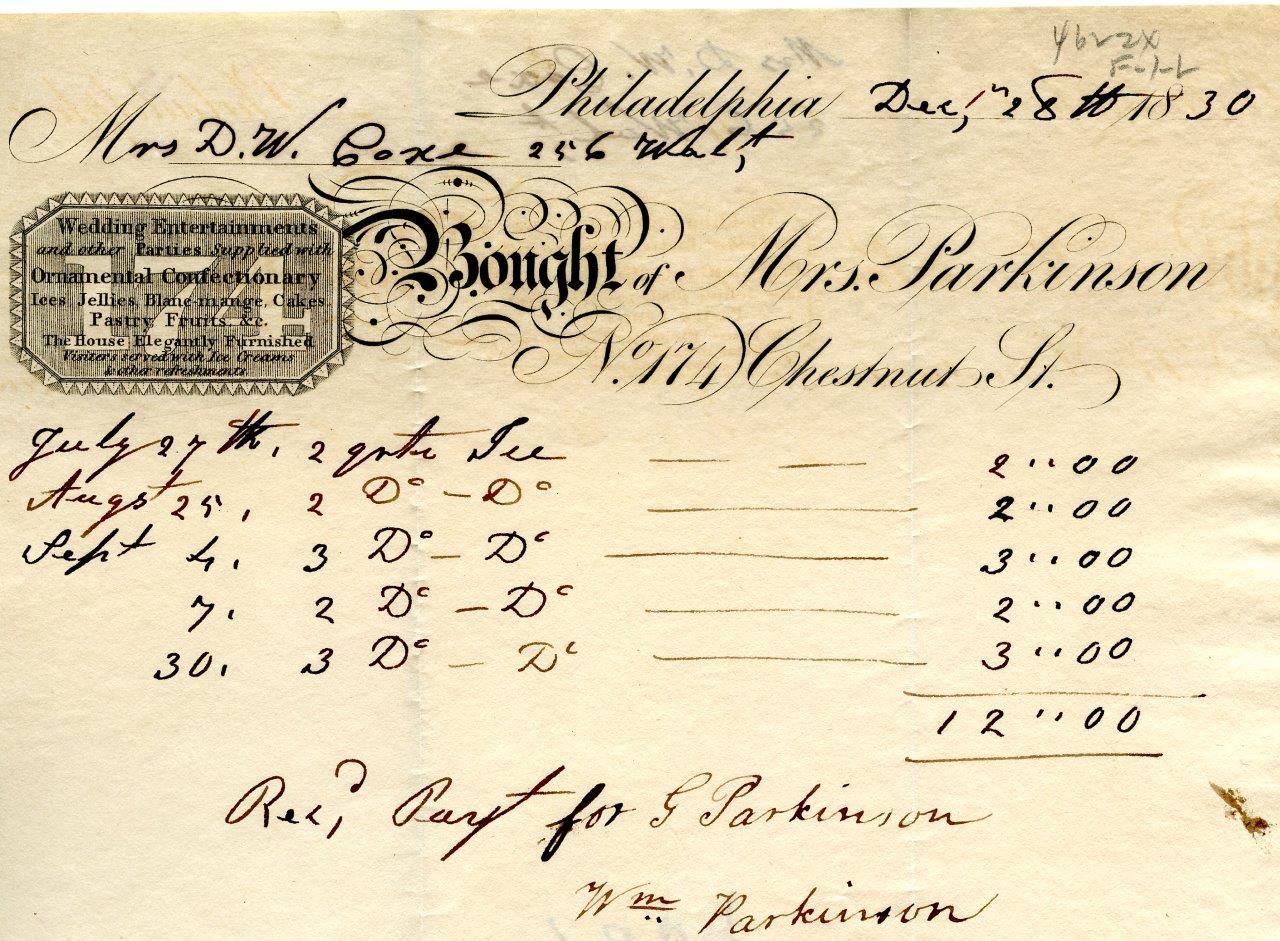 Philadelphia Decr, 28th 1830
Mrs D.W. Coxe 256 Waln,t
Wedding Entertainments
and other Parties Supplied with
Ornamental Confectionary
Ices Jellies, Blanc-mange, Cakes
Pastry Fruits &c.
The House Elegantly Furnished
Visiters served with Ice Creams
& other refreshments
174
Bought of Mrs. Parkinson
No. 174 Chestnut St.
July 27th, 2 qrts Ice — — 2"00
Augst 25, 2 Do — Do — 2"00
Sept 4. 3 Do — Do — 3"00
7. 2 Do — Do — 2"00
30. 3 Do — Do — 3"00
12"00
Recd, Payt for G Parkinson
Wm Parkinson